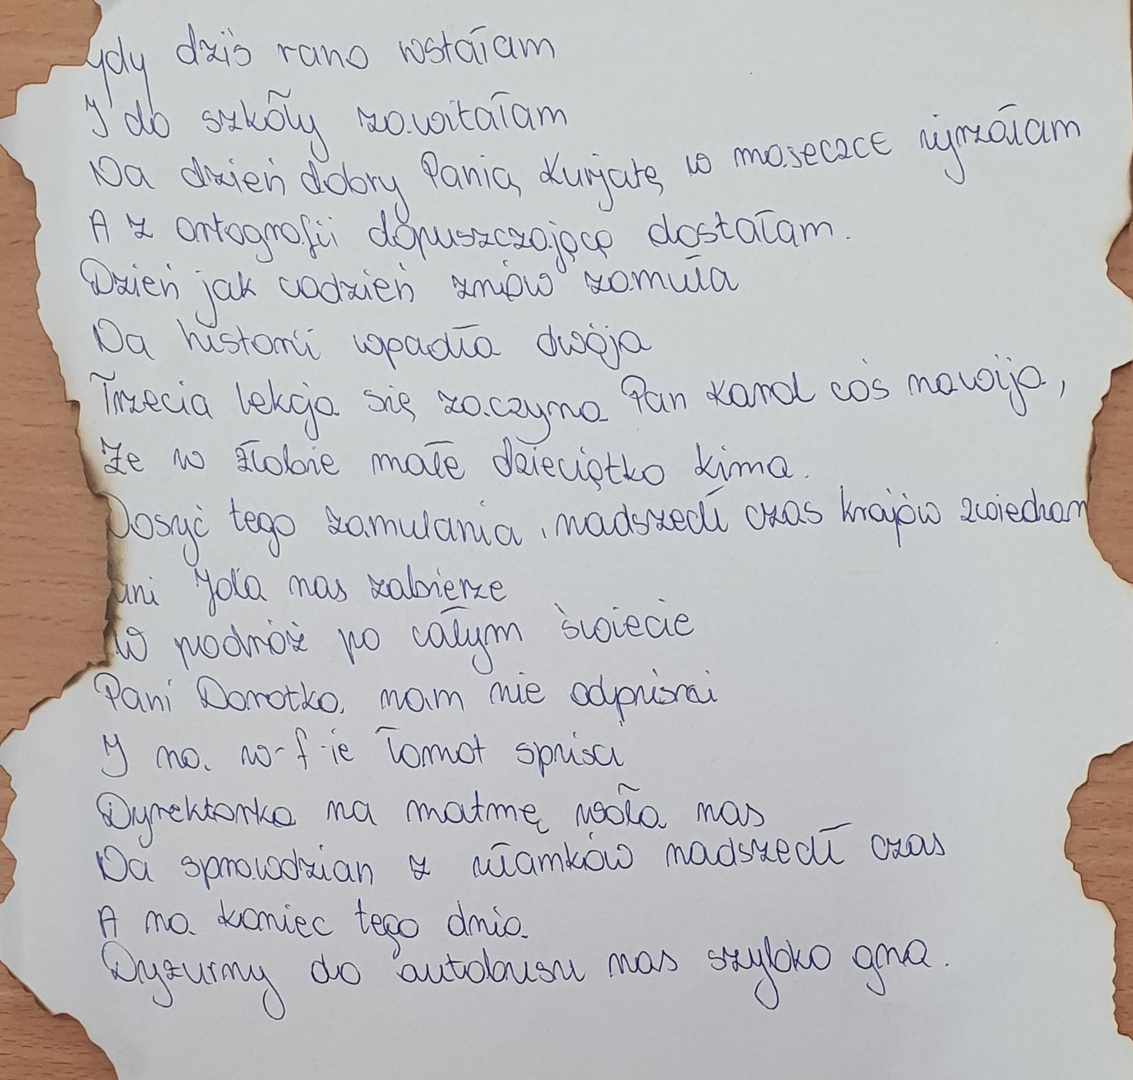 ydy dziś rano wstałam
I do szkoły zawitałam
Na dzień dobry Panią Kurjatę w maseczce ujrzałam
A z ortografii dopuszczającą dostałam.
Dzień jak codzień znów zamuła
Na historii wpadła dwója
Trzecia lekcja się zaczyna Pan Karol coś nawija,
Że w żłobie małe dzieciątko kima.
Dosyć tego zamulania, nadszedł czas krajów zwiedzan
ani Jola nas zabierze
W podróż po całym świecie
Pani Dorotka, nam nie odpuści
I na w-f-ie łomot spuści
Dyrektorka na matmę woła nas
Na sprawdzian z ułamków nadszedł czas
A na koniec tego dnia
Dyżurny do autobusu nas szybko gna.